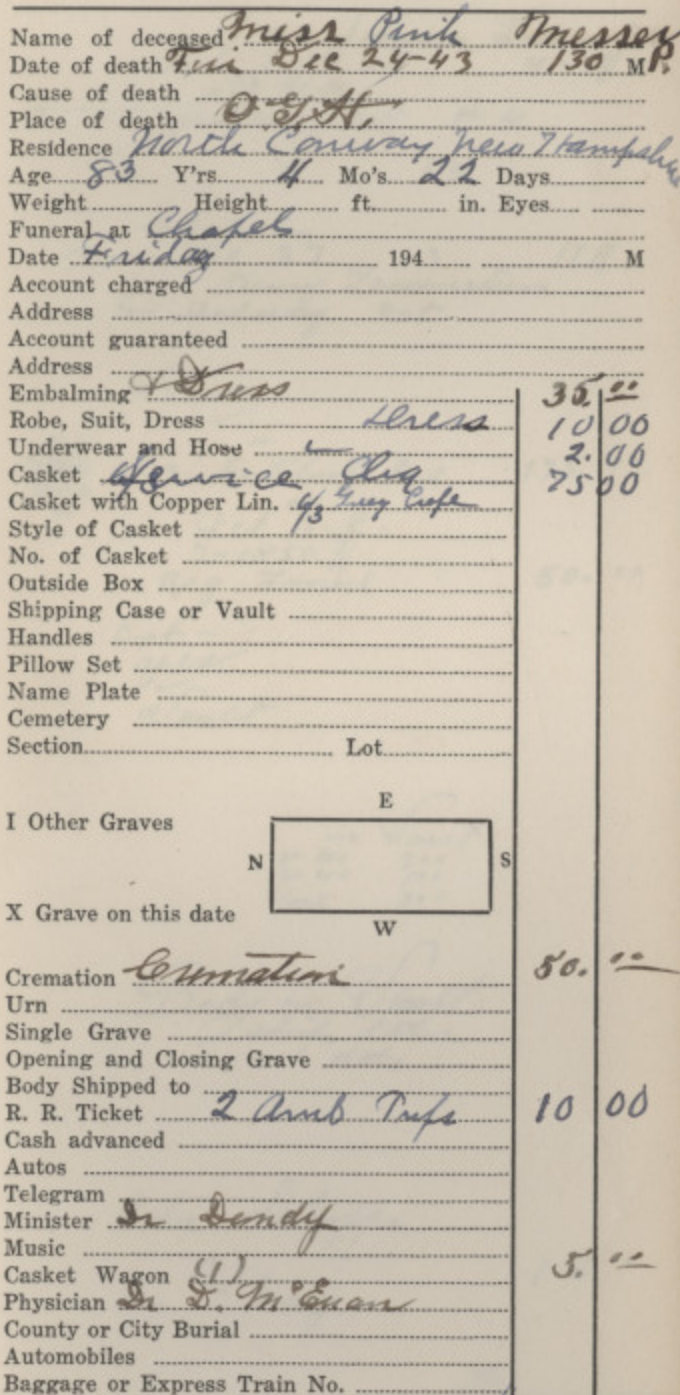 Name of deceased Miss Pink Messer
Date of death Fri Dec 24-43 130 M P.
Cause of death
Place of death O G H.
Residence North Conway New Hampshire
Age 83 Y'rs 4 Mo's 22 Days
Weight Height ft. in. Eyes
Funeral at Chapel
Date Friday 194 M
Account charged
Address
Account guaranteed
Address
Embalming & Dress 35.00
Robe, Suit, Dress Dress 10 00
Underwear and Hose 2.00
Casket Service Chg 75 00
Casket with Copper Lin. 6/3 Grey Crepe
Style of Casket
No. of Casket
Outside Box
Shipping Case or Vault
Handles
Pillow Set
Name Plate
Cemetery
Section Lot
E
I Other Graves
N S
X Grave on this date
W
Cremation Cremation 50.00
Urn
Single Grave
Opening and Closing Grave
Body Shipped to
R. R. Ticket 2 Amb Trips 10 00
Cash advanced
Autos
Telegram
Minister Dr Dendy
Music
Casket Wagon (1) 5.00
Physician Dr D. McEuan
County or City Burial
Automobiles
Baggage or Express Train No.